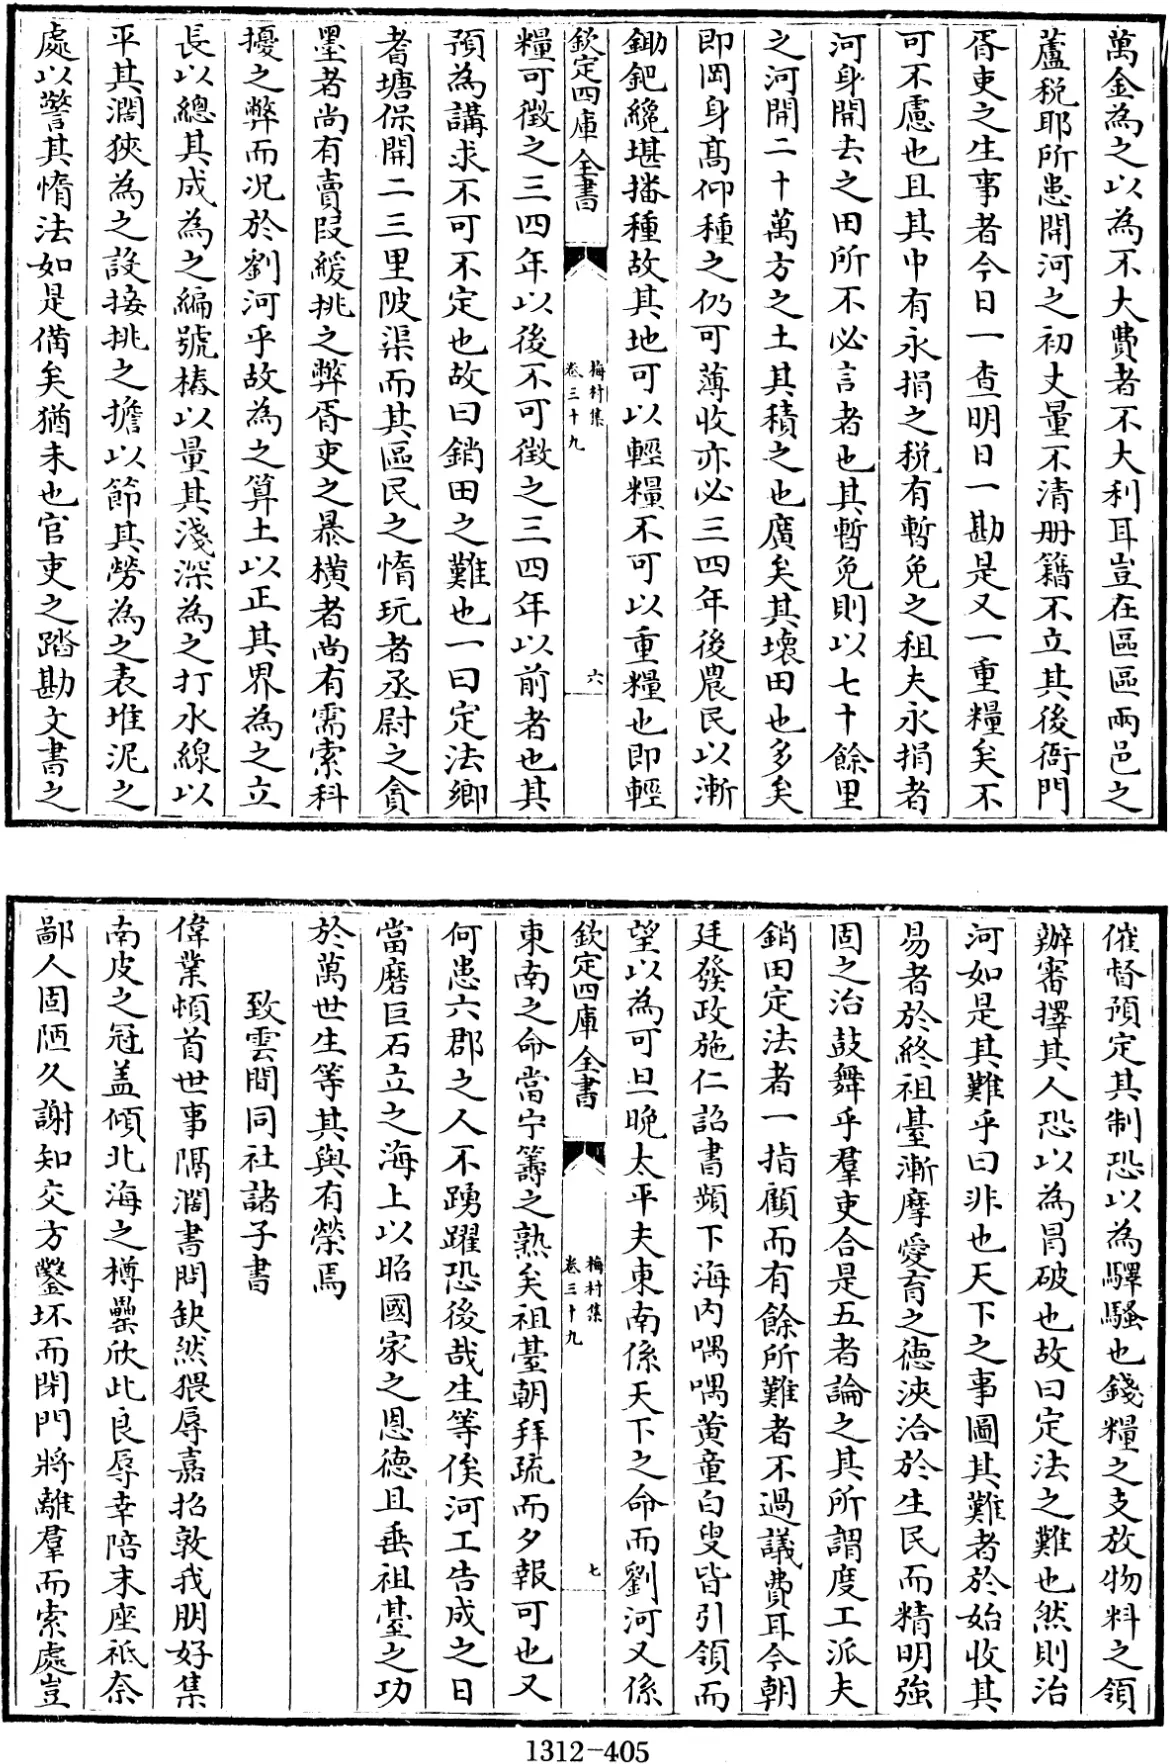 萬金為之以為不大費者不大利耳豈在區區兩邑之
蘆税耶所患開河之初丈量不清册籍不立其後衙門
胥吏之生事者今日一查明日一勘是又一重糧矣不
可不慮也且其中有永捐之税有暫免之租夫永捐者
河身開去之田所不必言者也其暫免則以七十餘里
之河開二十萬方之土其積之也廣矣其壞田也多矣
即岡身髙仰種之仍可薄收亦必三四年後農民以漸
鋤鈀纔堪播種故其地可以輕糧不可以重糧也即輕
欽定四庫全書
梅村集
卷三十九
六
糧可徵之三四年以後不可徵之三四年以前者也其
預為講求不可不定也故曰銷田之難也一曰定法鄉
耆塘保開二三里陂渠而其區民之惰玩者丞尉之貪
墨者尚有賣叚緩挑之弊胥吏之暴横者尚有需索科
擾之弊而况於劉河乎故為之算土以正其界為之立
長以總其成為之編號樁以量其淺深為之打水線以
平其濶狹為之設接挑之擔以節其勞為之表堆泥之
處以警其惰法如是備矣猶未也官吏之踏勘文書之
催督預定其制恐以為驛騷也錢糧之支放物料之領
辦審擇其人恐以為冒破也故曰定法之難也然則治
河如是其難乎曰非也天下之事圖其難者於始收其
易者於終祖臺漸摩愛育之徳浹洽於生民而精明強
固之治鼓舞乎羣吏合是五者論之其所謂度工派夫
銷田定法者一指顧而有餘所難者不過議費耳今朝
廷發政施仁詔書頻下海内喁喁黄童白叟皆引領而
望以為可旦晚太平夫東南係天下之命而劉河又係
欽定四庫全書
梅村集
卷三十九
七
東南之命當宁籌之熟矣祖臺朝拜疏而夕報可也又
何患六郡之人不踴躍恐後哉生等俟河工告成之日
當磨巨石立之海上以昭國家之恩徳且垂祖臺之功
於萬世生等其與有榮焉
致雲間同社諸子書
偉業頓首世事隔濶書問缺然猥辱嘉招敦我朋好集
南皮之冠盖傾北海之樽罍欣此良辱幸陪末座祇奈
鄙人固陋久謝知交方鑿坏而閉門將離羣而索處豈
1312-405